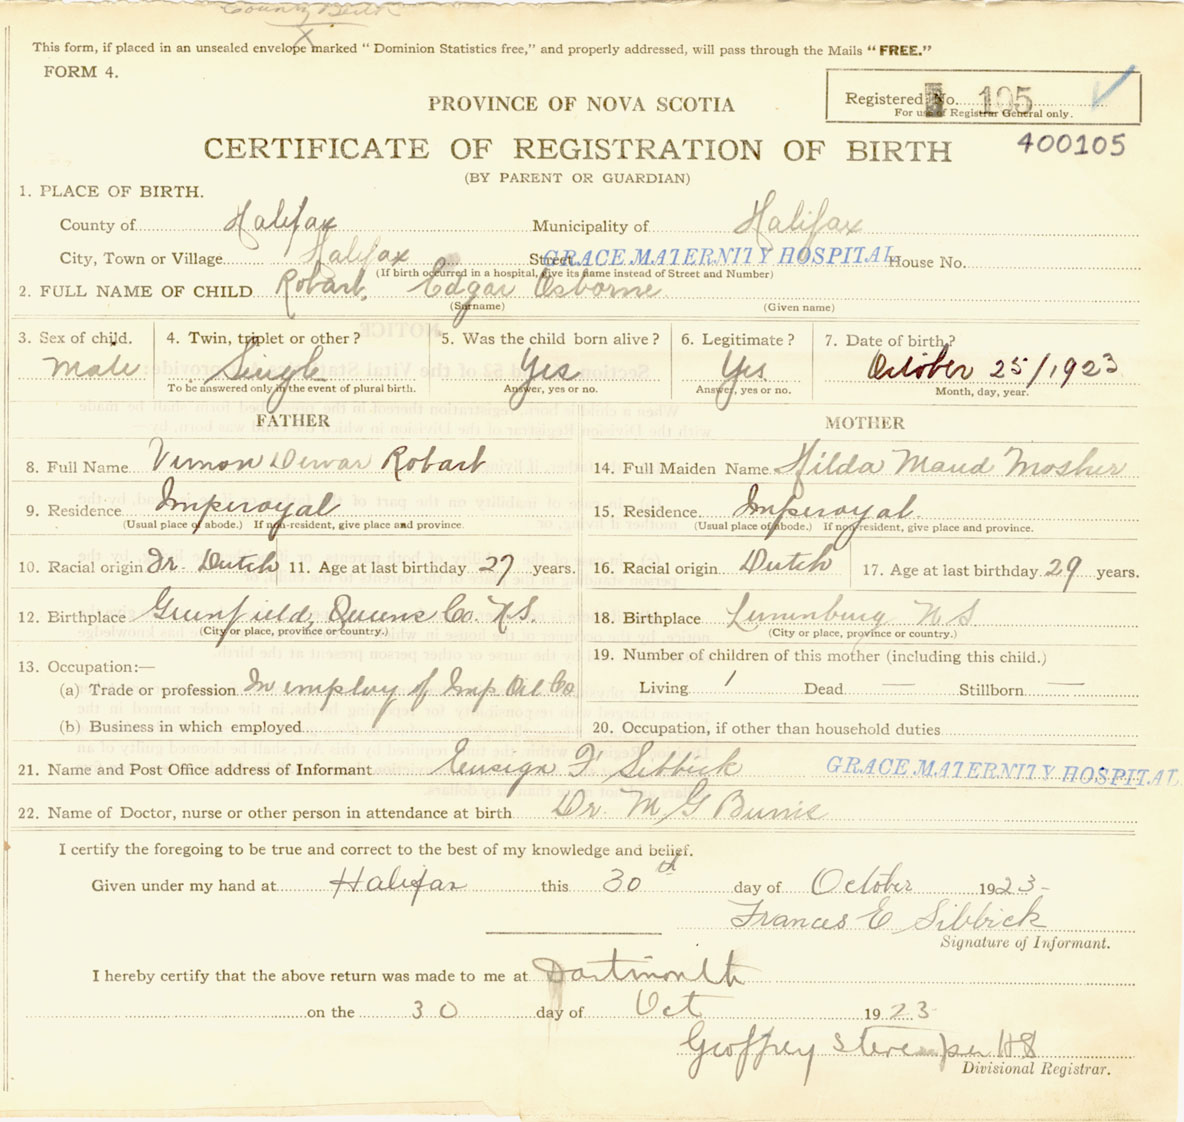 County Birth
X
This form, if placed in an unsealed envelope marked "Dominion Statistics free," and properly addressed, will pass through the Mails "FREE."
FORM 4.
Registered No. 105
For use of Registrar General only.
PROVINCE OF NOVA SCOTIA
400105
CERTIFICATE OF REGISTRATION OF BIRTH
(BY PARENT OR GUARDIAN)
1. PLACE OF BIRTH.
County of Halifax Municipality of Halifax
City, Town or Village Halifax Street GRACE MATERNITY HOSPITAL House No.
(If birth occurred in a hospital, give its name instead of Street and Number)
2. FULL NAME OF CHILD Robart, Edgar Osborne
(Surname) (Given name)
3. Sex of child. 4. Twin, triplet or other? 5. Was the child born alive? 6. Legitimate? 7. Date of birth?
Male Single Yes Yes October 25/1923
To be answered only in the event of plural birth. Answer, yes or no. Answer, yes or no. Month, day, year.
FATHER MOTHER
8. Full Name Vernon Dewar Robart 14. Full Maiden Name Hilda Maud Mosher
9. Residence Imperoyal 15. Residence Imperoyal
(Usual place of abode.) If non-resident, give place and province. (Usual place of abode.) If non-resident, give place and province.
10. Racial origin Dutch 11. Age at last birthday 27 years. 16. Racial origin Dutch 17. Age at last birthday 29 years.
12. Birthplace Greenfield, Queens Co. N.S. 18. Birthplace Lunenburg N S
(City or place, province or country.) (City or place, province or country.)
13. Occupation:— 19. Number of children of this mother (including this child.)
(a) Trade or profession In employ of Imp Oil Co Living 1 Dead — Stillborn —
(b) Business in which employed 20. Occupation, if other than household duties
21. Name and Post Office address of Informant Ensign F Sibbick GRACE MATERNITY HOSPITAL
22. Name of Doctor, nurse or other person in attendance at birth Dr. M G Burris
I certify the foregoing to be true and correct to the best of my knowledge and belief.
Given under my hand at Halifax this 30th day of October 1923-
Frances E Sibbick
Signature of Informant.
I hereby certify that the above return was made to me at Dartmouth
on the 30 day of Oct 1923
Geoffrey per
Divisional Registrar.